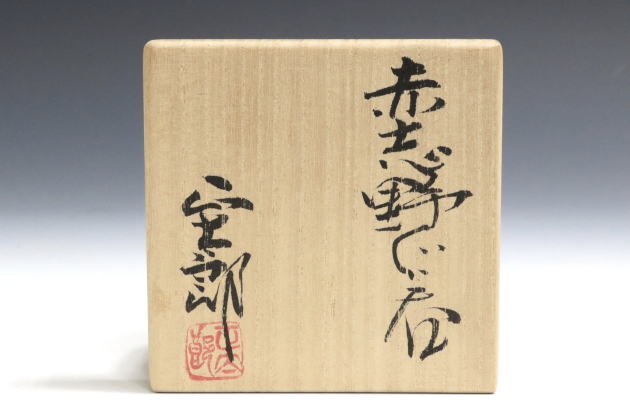 赤志野ぐい呑
宝郎